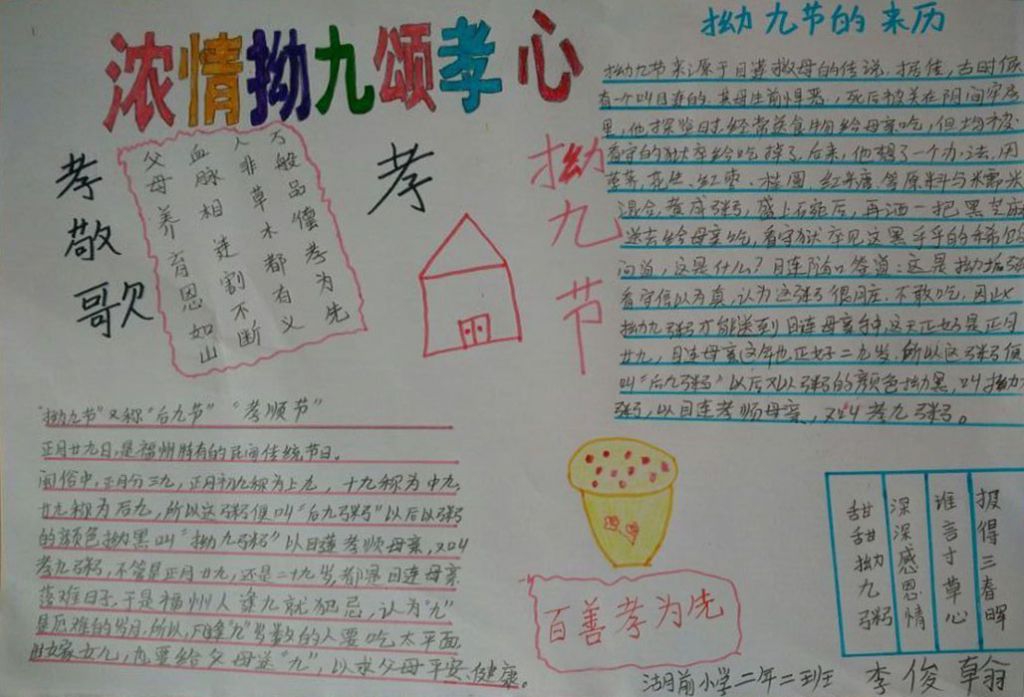 浓情拗九颂孝心
孝敬歌
万般品德孝为先
人非草木都有义
血脉相连割不断
父母养育恩如山
孝
拗九节
拗九节的来历
拗九节来源于目莲救母的传说。据传，古时候
有一个叫目连的，其母生前悍恶，死后被关在阴间牢房
里，他探监时，经常送食物给母亲吃，但均被
看守的狱卒给吃掉了。后来，他想了一个办法，用
荸荠、花生、红枣、桂圆、红糖等原料与米
混合，煮成粥，盛上碗后，再洒一把黑芝麻
送去给母亲吃，看守狱卒见这黑乎乎的稀
问道，这是什么？目连随口答道：这是拗垢粥
看守信以为真，认为这粥很脏，不敢吃，因此
拗九粥才能送到目连母亲手中，这天正好是正月
廿九，目连母亲这年也正好二九岁，所以这粥便
叫“后九粥”以后又以粥的颜色拗黑，叫拗九
粥，以目连孝顺母亲，又叫孝九粥。
“拗九节”又称“后九节”“孝顺节”
正月廿九日，是福州特有的民间传统节日。
闽俗中，正月分三九，正月初九称为上九，十九称为中九，
廿九称为后九，所以这粥便叫“后九粥”以后以粥
的颜色拗黑叫“拗九粥”以目莲孝顺母亲，又叫
孝九粥，不管是正月廿九，还是二十九岁，都是目连母亲
落难日子，于是福州人逢九就犯忌，认为“九”
是厄难的岁月，所以，凡逢“九”岁数的人要吃太平面，
出嫁女儿，也要给父母送“九”，以求父母平安、健康。
百善孝为先
甜甜拗九粥
深深感恩情
谁言寸草心
报得三春晖
湖前小学二年二班
李俊翰